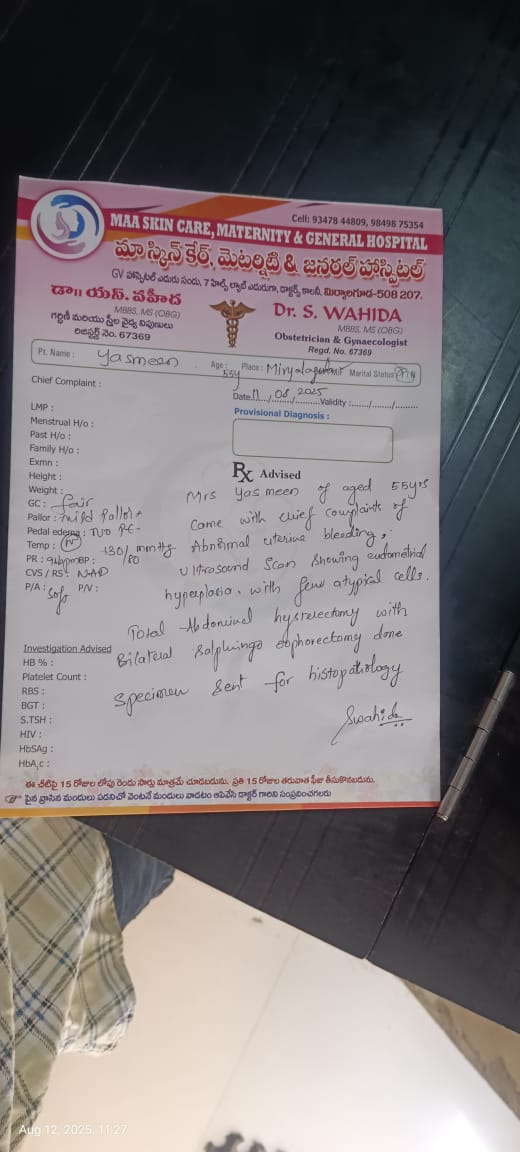 Cell: 93478 44809, 98498 75354
MAA SKIN CARE, MATERNITY & GENERAL HOSPITAL
మా స్కిన్ కేర్, మెటర్నిటి & జనరల్ హాస్పిటల్
GV హాస్పిటల్ ఎదురు సందు, 7 హిల్స్ ల్యాబ్ ఎదురుగా, డాక్టర్స్ కాలనీ, మిర్యాలగూడ-508 207.
డా॥ యస్. వహీద
MBBS, MS (OBG)
గర్భిణీ మరియు స్త్రీల వైద్య నిపుణులు
రిజిస్టర్డ్ నెం. 67369
Dr. S. WAHIDA
MBBS, MS (OBG)
Obstetrician & Gynaecologist
Regd. No. 67369
Pt. Name : Yasmeen Age : 55y Place : Marital Status
Date. 11/08/2025 Validity :....../....../.........
Chief Complaint :
Provisional Diagnosis :
LMP :
Menstrual H/o :
Past H/o :
Family H/o :
Exmn :
Height :
Weight :
GC : fair
Pallor : mild Pallor+
Pedal edema : No PE-
Temp : N
PR : BP : 130/80 mmHg
CVS / RS : NAD
P/A : Soft P/V :
Rx Advised
Mrs Yasmeen of aged 55yrs
came with chief complaints of
Abnormal uterine bleeding,
Ultrasound Scan showing endometrial
hyperplasia, with few atypical cells.
Total Abdominal hysterectomy with
Bilateral Salphingo oophorectomy done
Specimen Sent for histopathology
Swahida
Investigation Advised
HB % :
Platelet Count :
RBS :
BGT :
S.TSH :
HIV :
HbSAg :
HbA,c :
ఈ చీటిపై 15 రోజుల లోపు రెండు సార్లు మాత్రమే చూడబడును. ప్రతి 15 రోజుల తరువాత ఫీజు తీసుకొనబడును.
పైన వ్రాసిన మందులు పడనిచో వెంటనే మందులు వాడటం ఆపివేసి డాక్టర్ గారిని సంప్రదించగలరు
Aug 12, 2025, 11:27